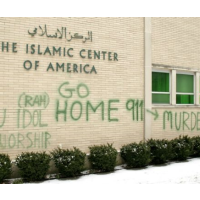 المركز الإسلامي
THE ISLAMIC CENTER
OF AMERICA
GO
HOME 911 → MURDE
(RAH)
U IDOL
WORSHIP